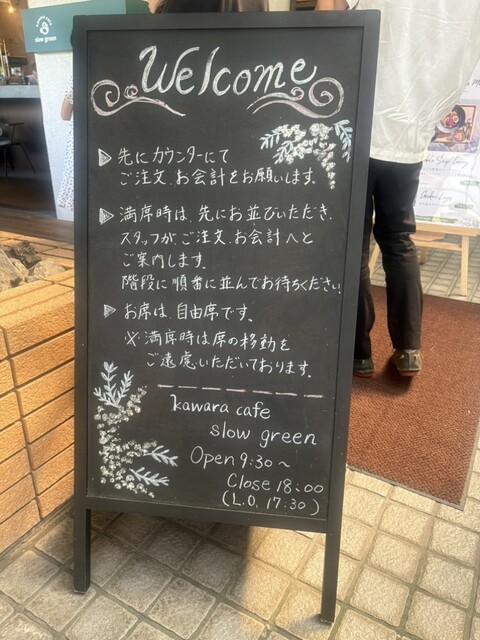 slow green
Welcome
▷ 先にカウンターにて
ご注文、お会計をお願いします。
▷ 満席時は、先にお並びいただき、
スタッフが、ご注文、お会計へと
ご案内します。
階段に順番に並んでお待ちください。
▷ お席は、自由席です。
※満席時は席の移動を
ご遠慮いただいております。
kawara cafe
slow green
Open 9:30〜
Close 18:00
(L.O. 17:30)